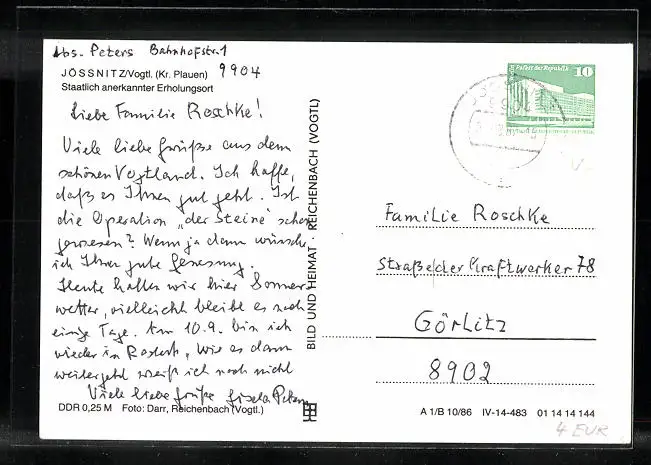 Abs. Peters Bahnhofstr. 1
JÖSSNITZ/Vogtl. (Kr. Plauen) 9904
Staatlich anerkannter Erholungsort
Liebe Familie Roschke!
Viele liebe Grüße aus dem
schönen Vogtland. Ich hoffe,
daß es Ihnen gut geht. Ist
die Operation "der Steine" schon
gewesen? Wenn ja dann wünsche
ich Ihnen gute Genesung.
Heute hatten wir hier Sommer-
wetter, vielleicht bleibt es noch
einige Tage. Am 10.9. bin ich
wieder in Rostock, wie es dann
weitergeht weiß ich noch nicht
Viele liebe Grüße Gisela Peters
DDR 0,25 M Foto: Darr, Reichenbach (Vogtl.)
BILD UND HEIMAT · REICHENBACH (VOGTL)
Palast der Republik 10
Familie Roschke
Straße der Kraftwerker 78
Görlitz
8902
A 1/B 10/86 IV-14-483 01 14 14 144
4 EUR